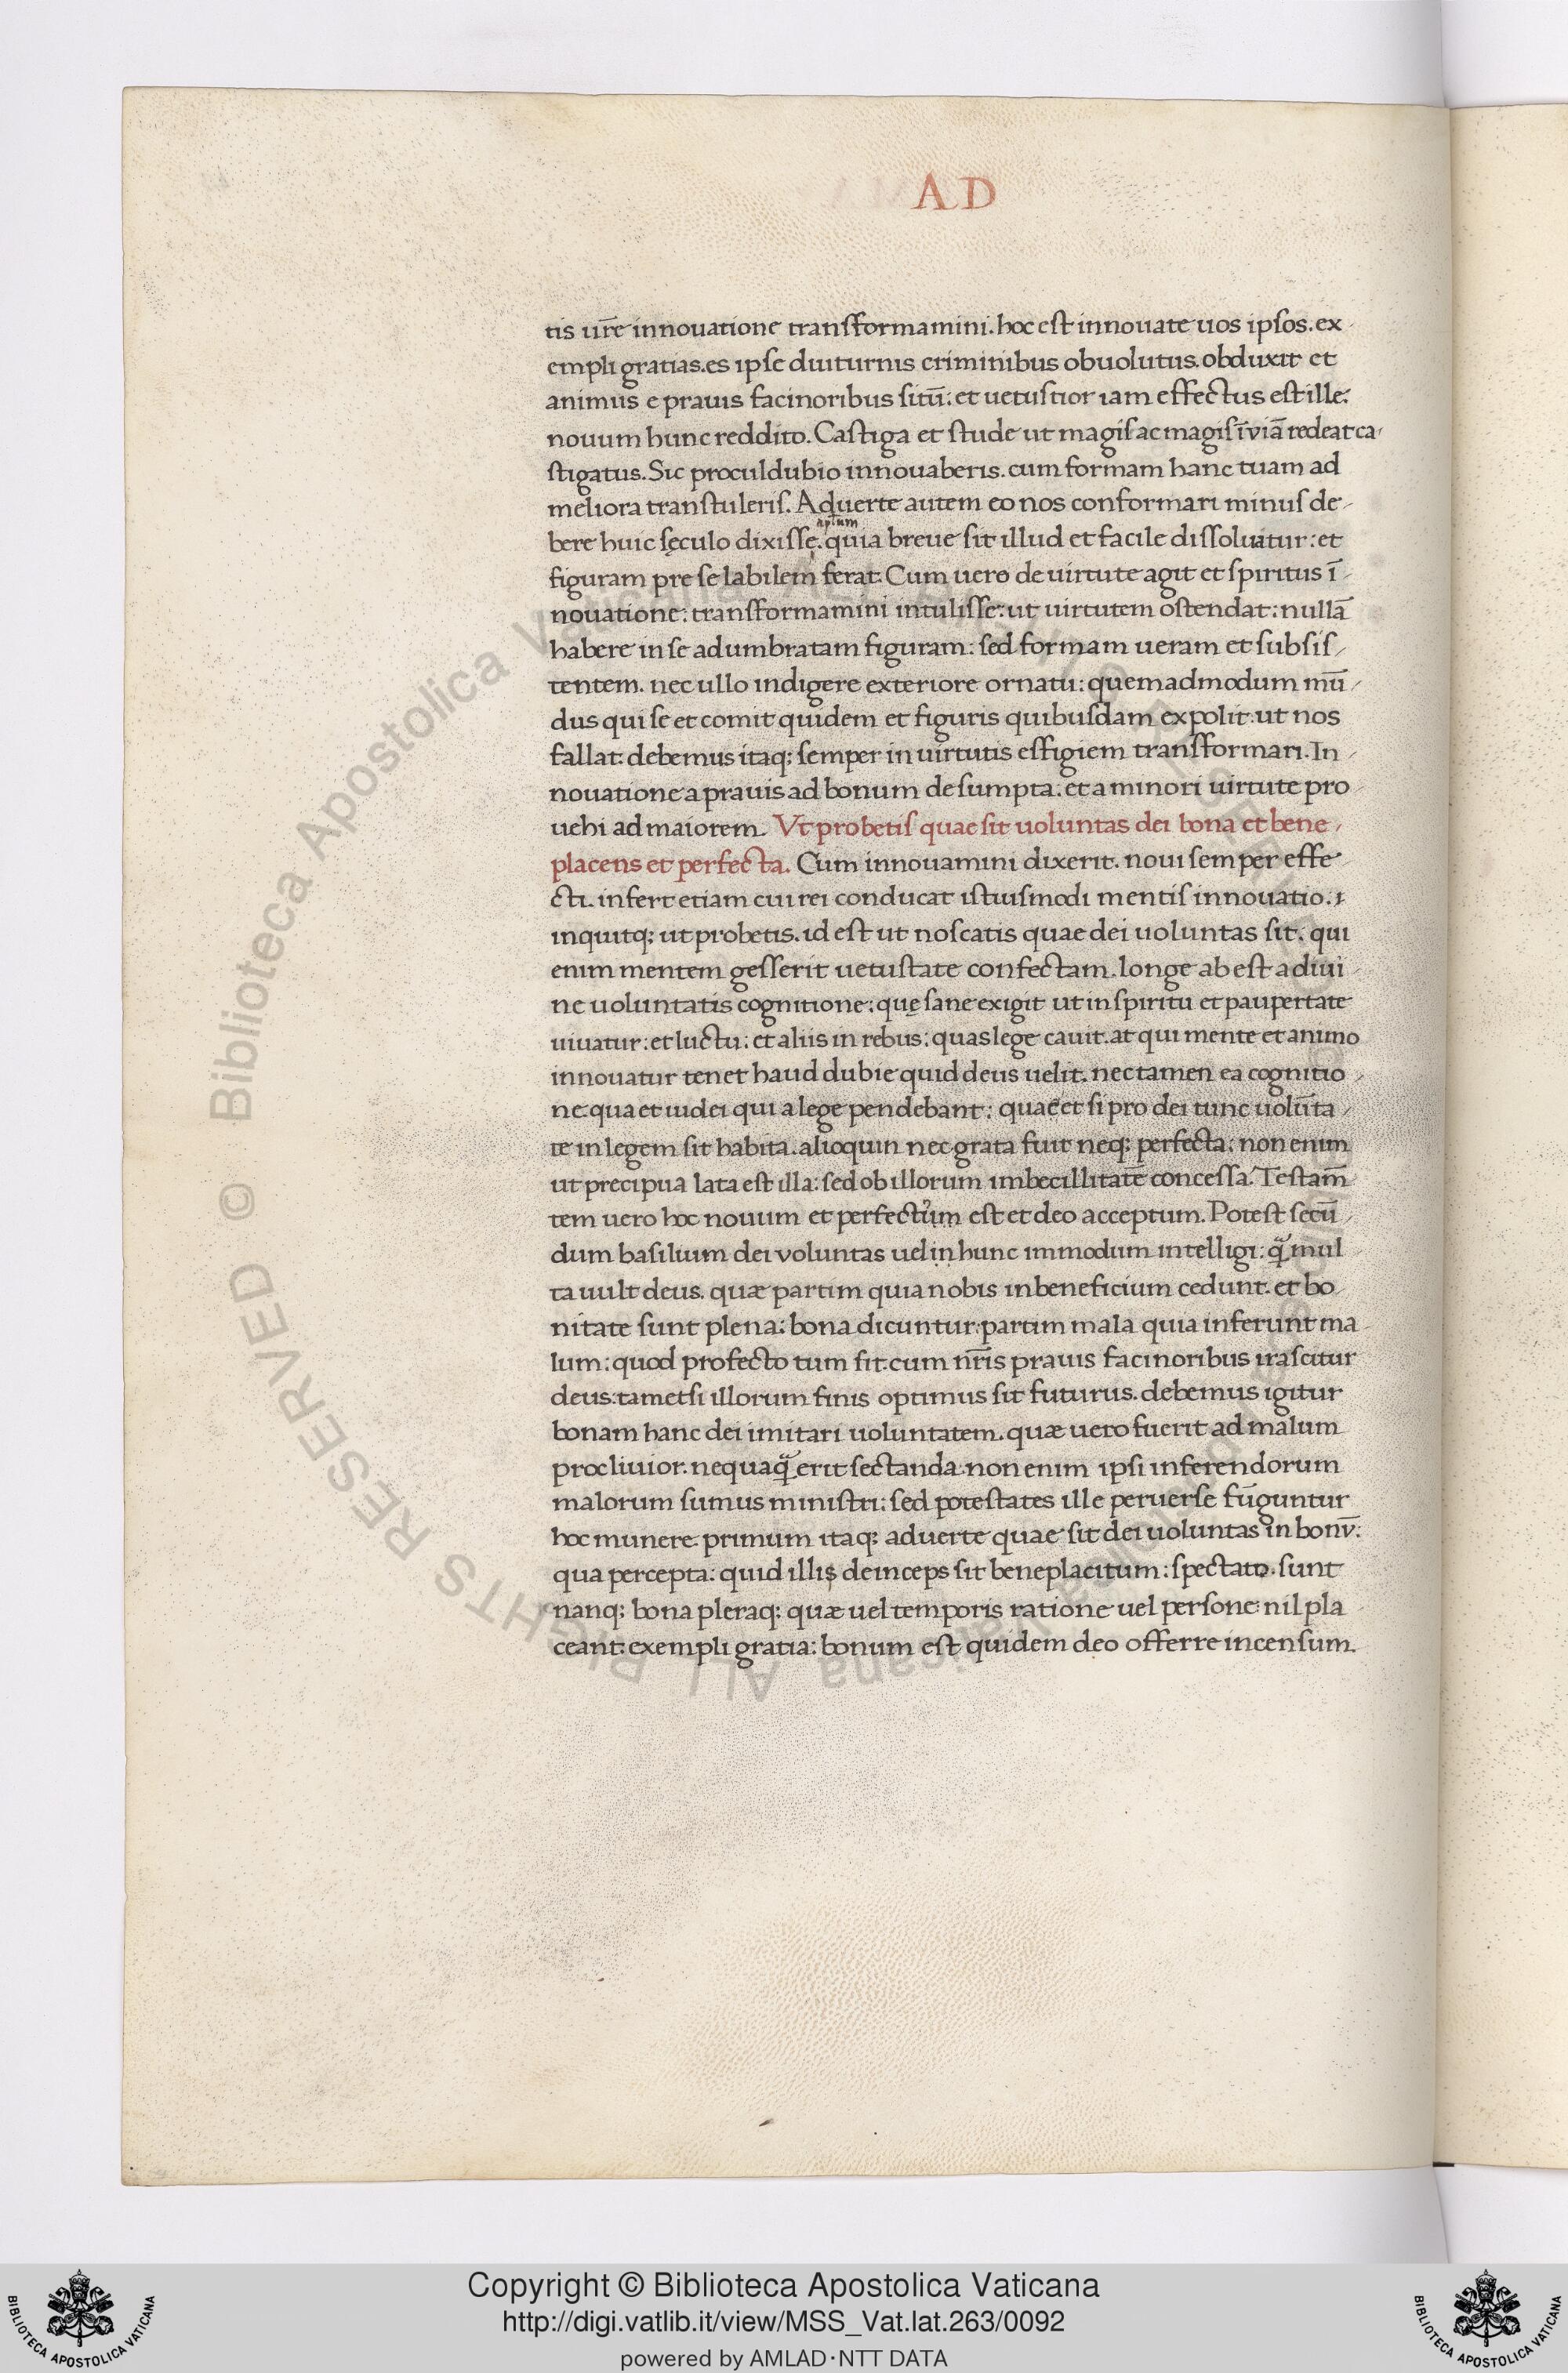 A D
tis ur̅e innouatione transformamini. hoc est innouate uos ipsos. ex
empli gratias. es ipse diuturnis criminibus obuolutus. obduxit et
animus e prauis facinoribus sitū: et uetustior iam effectus est ille:
nouum hunc reddito. Castiga et stude ut magis ac magis ī viā redeat ca
stigatus. Sic proculdubio innouaberis. cum formam hanc tuam ad
meliora transtuleris. Aduerte autem eo nos conformari minus de
aptum
bere huic sęculo dixisse. quia breue sit illud et facile dissoluatur: et
figuram pre se labilem ferat. Cum uero de uirtute agit et spiritus ī
nouatione: transformamini intulisse: ut uirtutem ostendat: nullā
habere in se adumbratam figuram: sed formam ueram et subsis
tentem. nec ullo indigere exteriore ornatu: quemadmodum mū
dus qui se et comit quidem et figuris quibusdam expolit: ut nos
fallat. debemus itaq; semper in uirtutis effigiem transformari. In
nouatione a prauis ad bonum desumpta: et a minori uirtute pro
uehi ad maiorem. Vt probetis quae sit uoluntas dei bona et bene
placens et perfecta. Cum innouamini dixerit. noui semper effe
cti. infert etiam cui rei conducat istiusmodi mentis innouatio. i
inquitq; ut probetis. id est ut noscatis quae dei uoluntas sit. qui
enim mentem gesserit uetustate confectam. longe abest a diui
ne uoluntatis cognitione: quę sane exigit ut in spiritu et paupertate
uiuatur: et luctu: et aliis in rebus: quas lege cauit. at qui mente et animo
innouatur tenet haud dubie quid deus uelit. nec tamen ea cognitio
ne. qua et iudei qui a lege pendebant: quae et si pro dei tunc uolūta
te in legem sit habita. alioquin nec grata fuit neq; perfecta: non enim
ut precipua lata est illa: sed ob illorum imbecillitatē concessa. Testam̅
tem uero hoc nouum et perfectum est et deo acceptum. Potest secū
dum basilium dei voluntas uel in hunc immodum intelligi: q̄ mul
ta uult deus. quæ partim quia nobis in beneficium cedunt. et bo
nitate sunt plena: bona dicuntur: partim mala quia inferunt ma
lum: quod profecto tum fit. cum nr̅is prauis facinoribus irascitur
deus: tametsi illorum finis optimus sit futurus. debemus igitur
bonam hanc dei imitari uoluntatem. quæ uero fuerit ad malum
procliuior. nequaq̄ erit sectanda. non enim ipsi inferendorum
malorum sumus ministri: sed potestates ille peruerse fūguntur
hoc munere. primum itaq; aduerte quae sit dei uoluntas in bonv̄:
qua percepta: quid illis deinceps sit beneplacitum: spectato. sunt
nanq; bona pleraq; quæ uel temporis ratione uel persone: nil pla
ceant. exempli gratia: bonum est quidem deo offerre incensum.
© Biblioteca Apostolica Vaticana ALL RIGHTS RESERVED
Copyright © Biblioteca Apostolica Vaticana
http://digi.vatlib.it/view/MSS_Vat.lat.263/0092
powered by AMLAD·NTT DATA
BIBLIOTECA APOSTOLICA VATICANA
BIBLIOTECA APOSTOLICA VATICANA